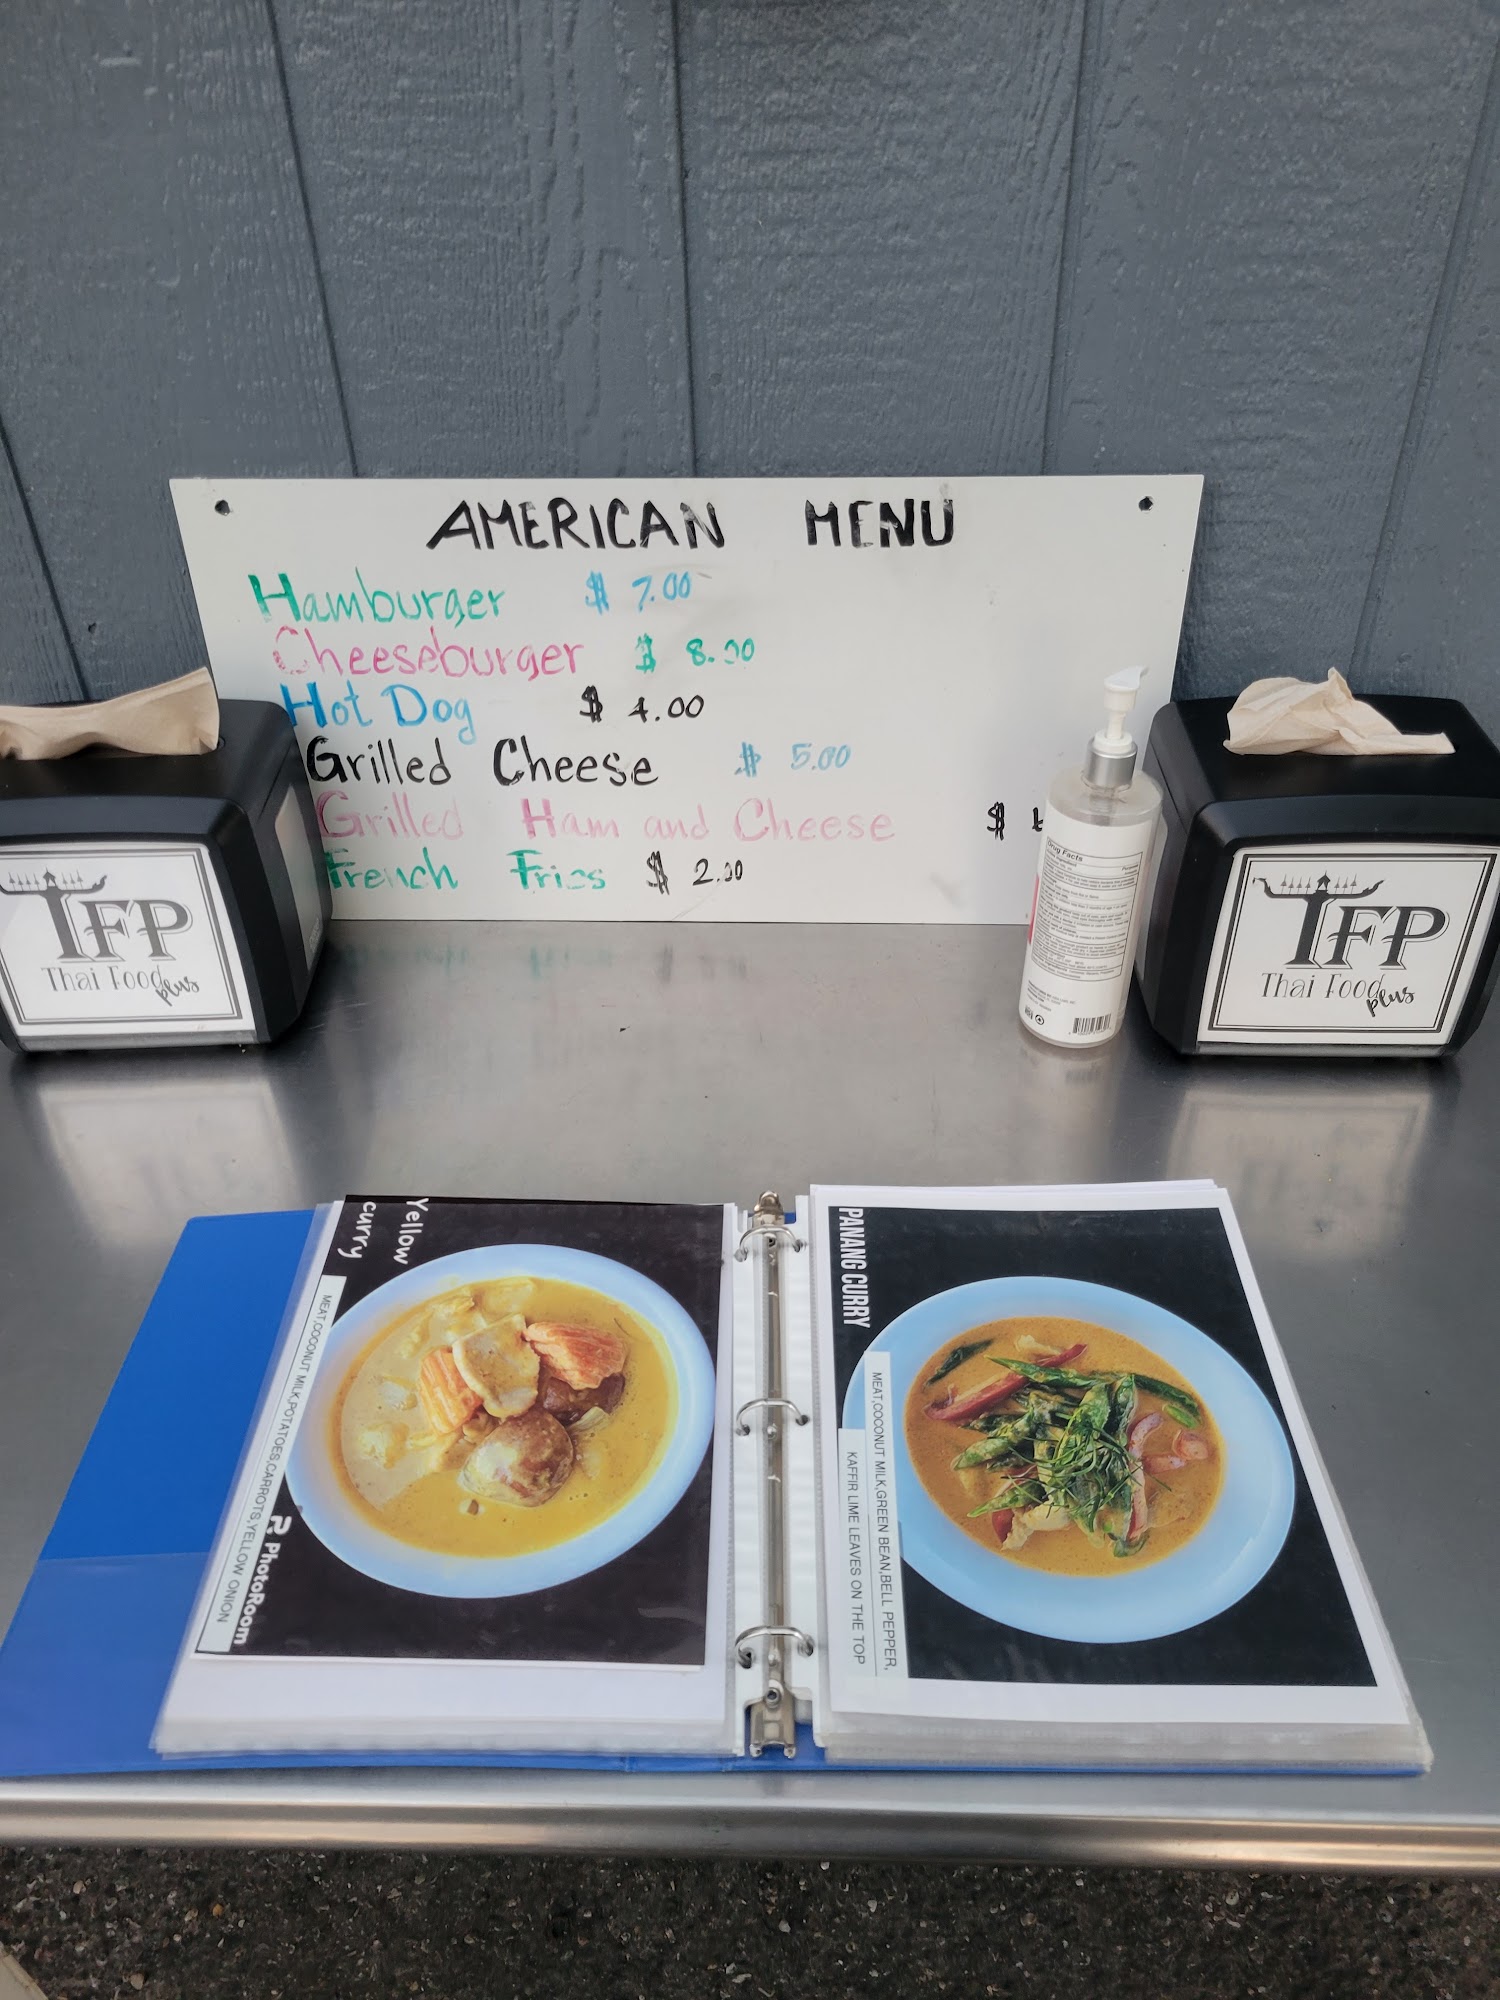 AMERICAN MENU
Hamburger $ 7.00
Cheeseburger $ 8.00
Hot Dog $ 4.00
Grilled Cheese $ 5.00
Grilled Ham and Cheese $
French Fries $ 2.00
TFP
Thai Food plus
Drug Facts
TFP
Thai Food plus
Yellow
curry
MEAT,COCONUT MILK,POTATOES,CARROTS,YELLOW ONION
PhotoRoom
PANANG CURRY
MEAT,COCONUT MILK,GREEN BEAN,BELL PEPPER,
KAFFIR LIME LEAVES ON THE TOP